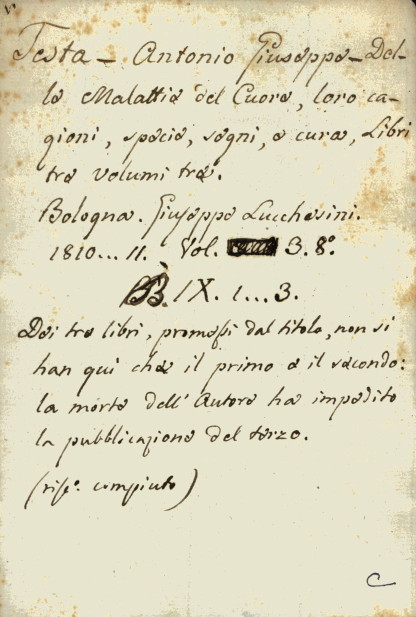 Testa - Antonio Giuseppe - Del-
le Malattie del Cuore, loro ca-
gioni, specie, segni, e cura, Libri
tre volumi tre.
Bologna. Giuseppe Lucchesini.
1810... 11. Vol. 3. 8°.
BB. IX. 1... 3.
Dei tre libri, promessi dal titolo, non si
han qui che il primo e il secondo:
la morte dell'Autore ha impedito
la pubblicazione del terzo.
(risp.e compiuto)
C